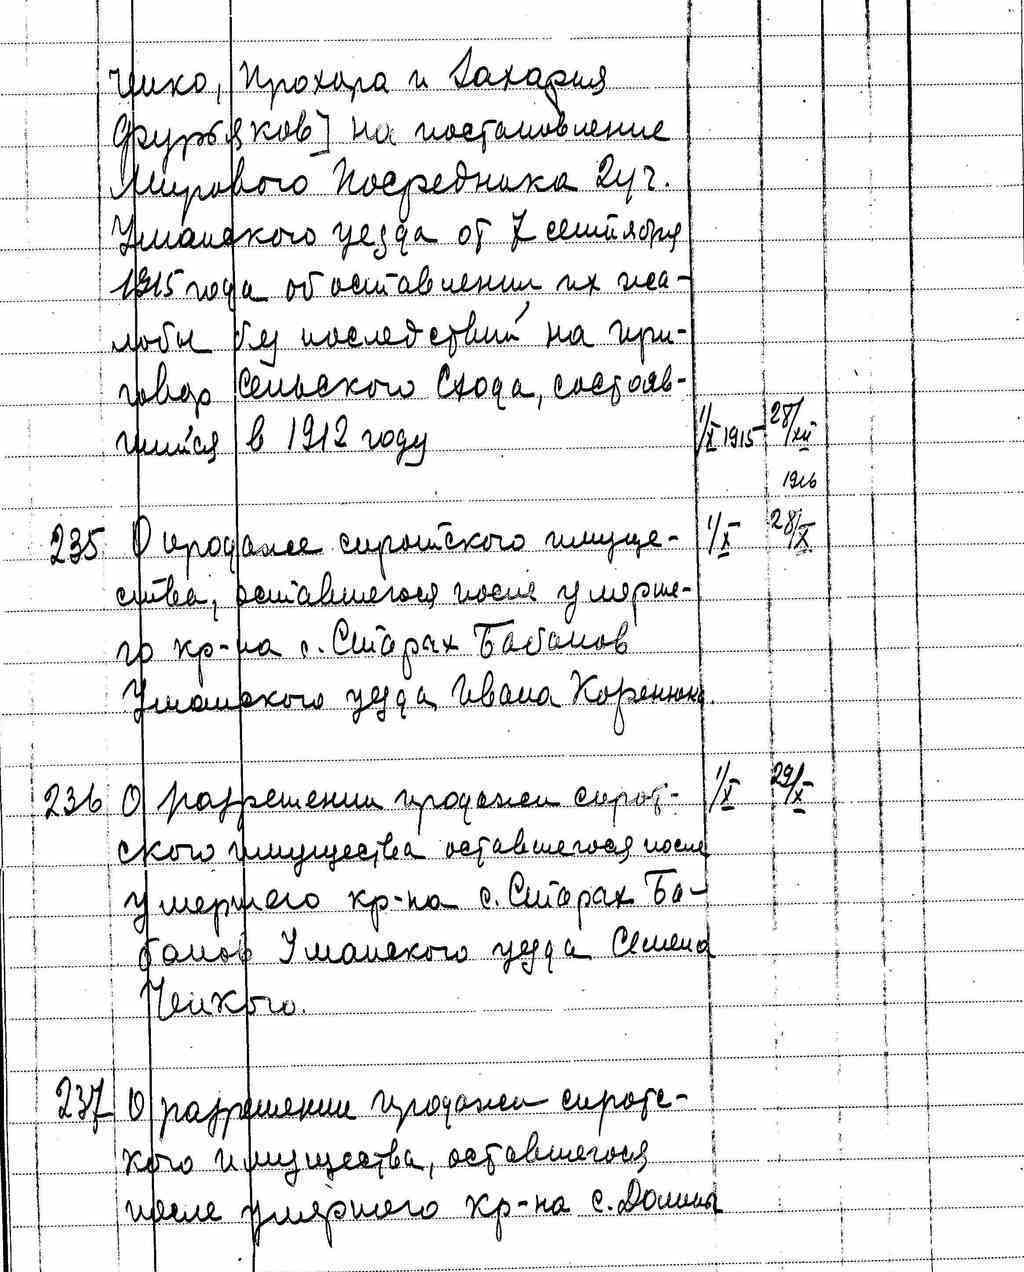 чико, Прохора и Захария
Фурьяков] на постановление
Мирового Посредника 2 уч.
Уманского уезда от 7 сентября
1915 года об оставлении их жа-
лобы без последствий на при-
говор Сельского Схода, состояв-
шийся в 1912 году
1/X 1915
28/XII
1916
235 О продаже сиротского имуще-
ства, оставшегося после умерше-
го кр-на с. Старых Бабанов
Уманского уезда Ивана
1/X
28/X
236 О разрешении продажи сирот-
ского имущества оставшегося после
умершего кр-на с. Старых Ба-
банов Уманского уезда Семена
1/X
29/X
237 О разрешении продажи сиротс-
кого имущества, оставшегося
после умершего кр-на с.